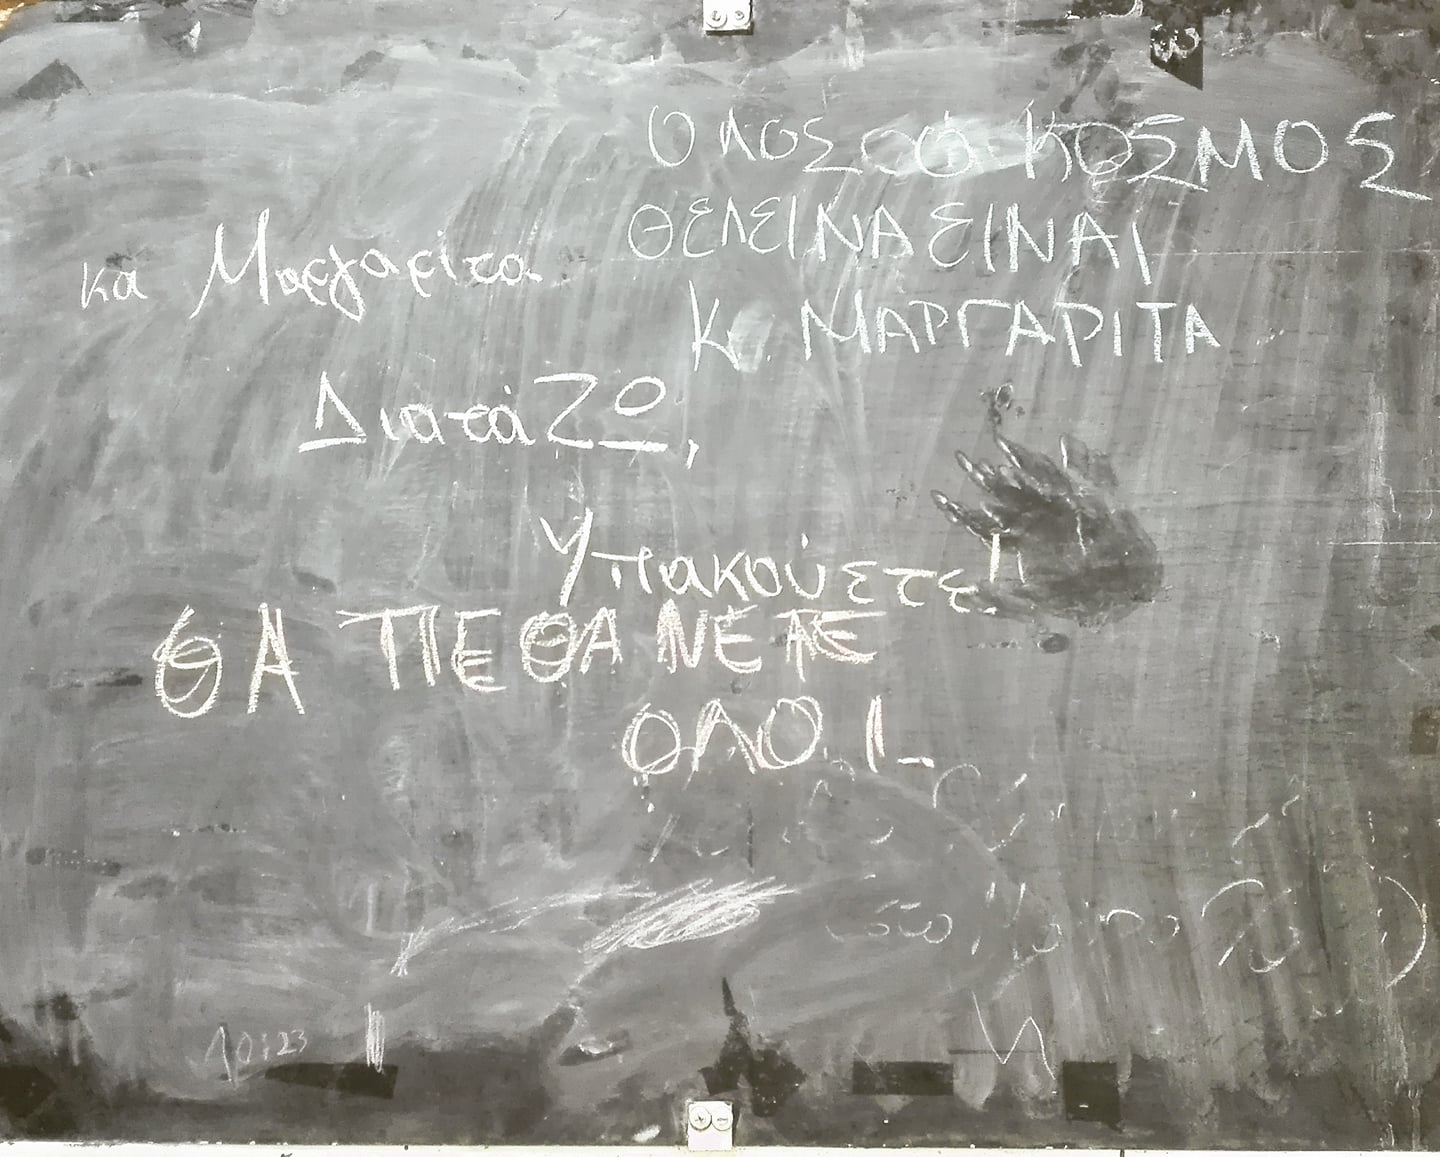 ΟΛΟΣ Ο ΚΟΣΜΟΣ
ΘΕΛΕΙ ΝΑ ΕΙΝΑΙ
Κ. ΜΑΡΓΑΡΙΤΑ
κα Μαργαρίτα
ΔιατάΖω,
Υπακούετε!!
ΘΑ ΠΕΘΑΝΕΤΕ
ΟΛΟΙ
10:23